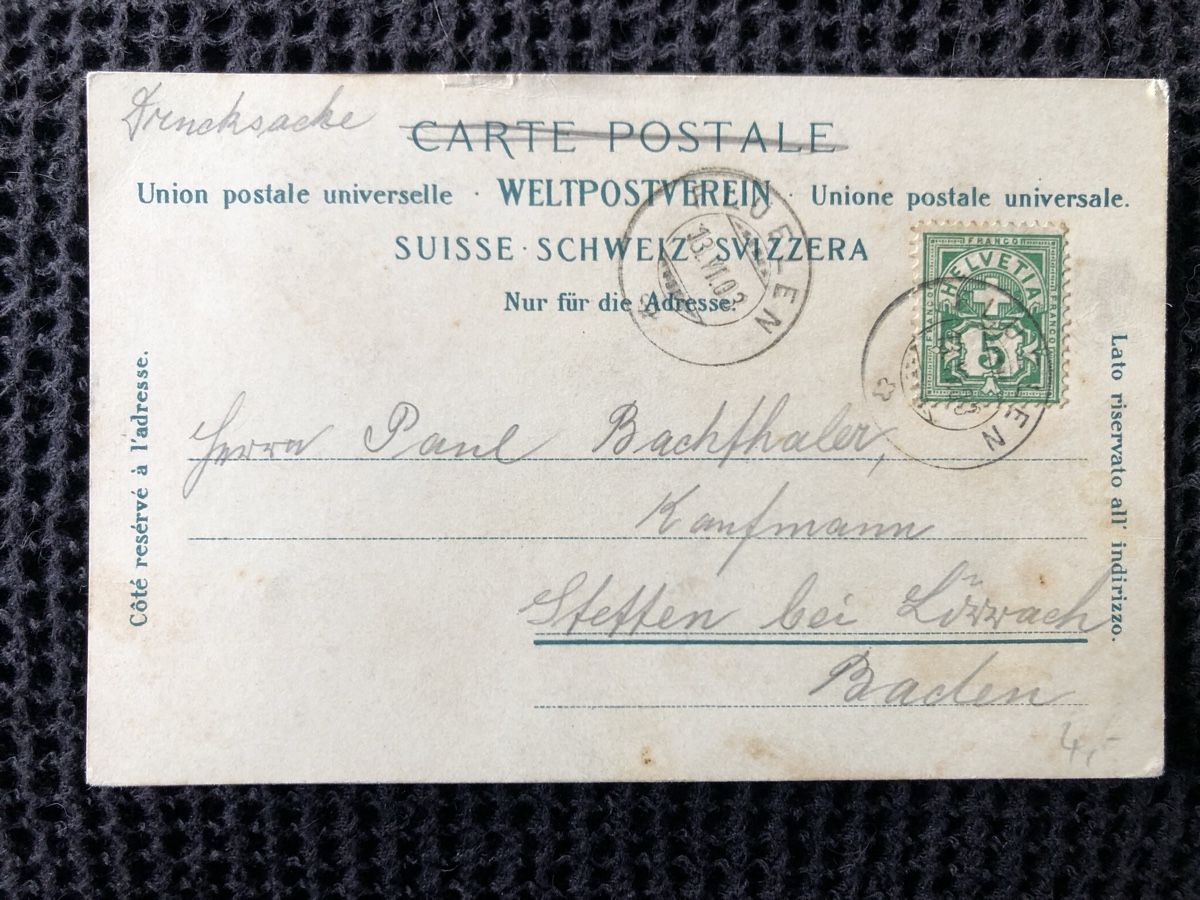 Drucksache
CARTE POSTALE
Union postale universelle · WELTPOSTVEREIN · Unione postale universale.
SUISSE · SCHWEIZ · SVIZZERA
Nur für die Adresse.
13.VI.03
FRANCO
HELVETIA
FRANCO
FRANCO
5
Côté resérvé à l'adresse.
Lato riservato all' indirizzo.
Herrn Paul Bachthaler,
Kaufmann
Stetten bei Lörrach
Baden
4,-